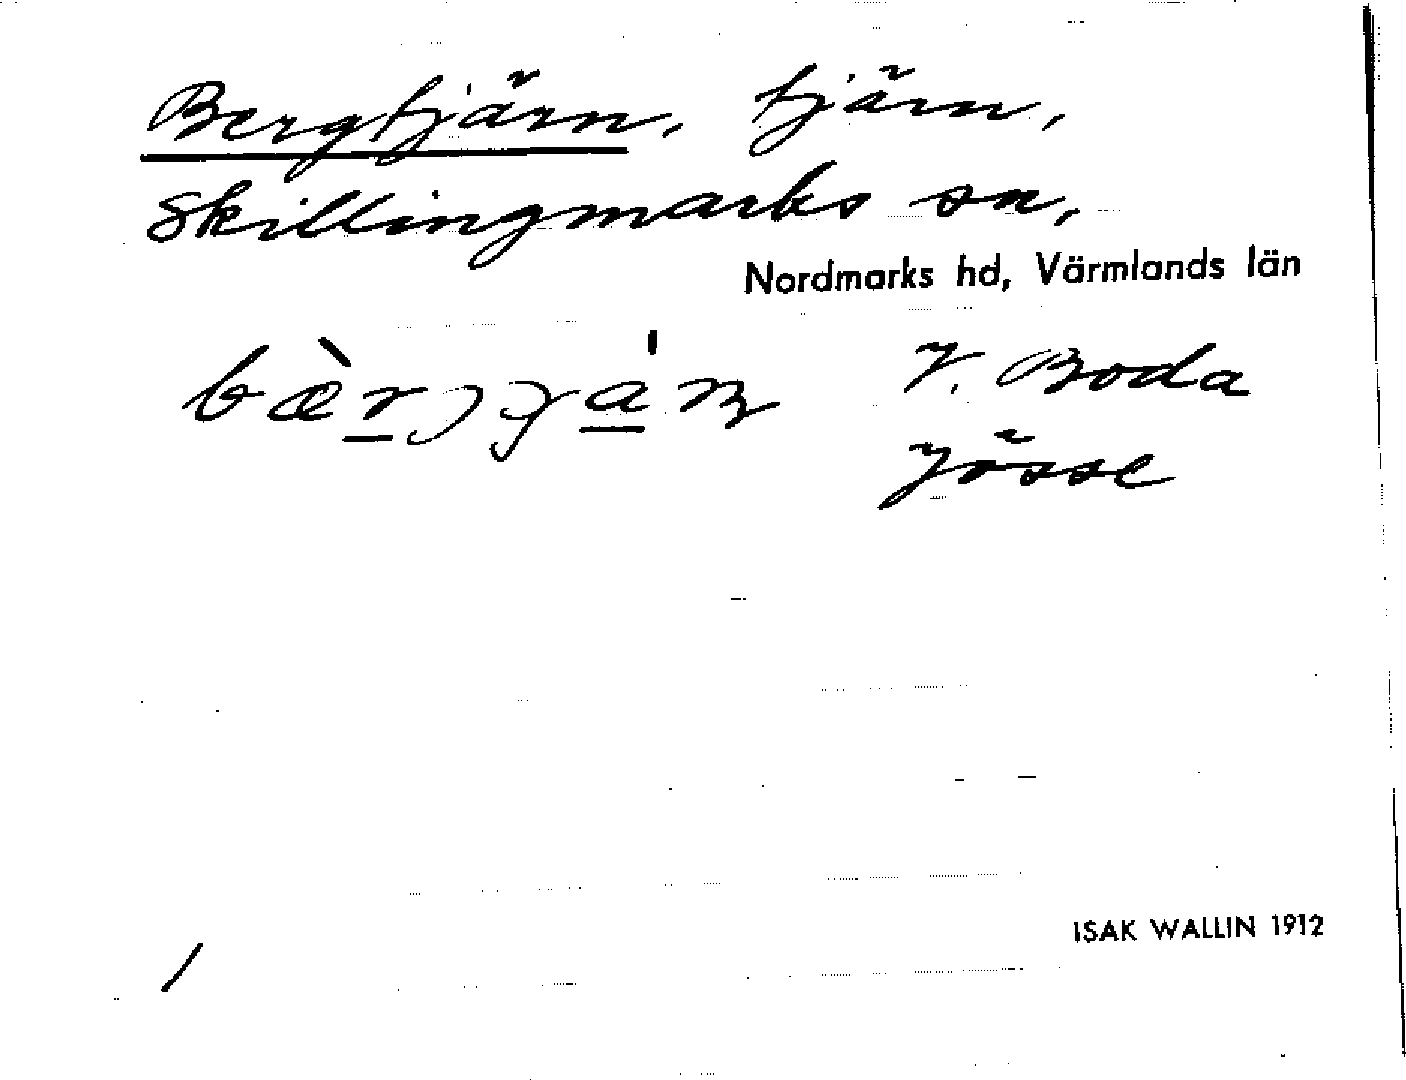 Bergtjärn, tjärn,
Skillingmarks sn,
Nordmarks hd, Värmlands län
V. Boda
Jösse
ISAK WALLIN 1912
/